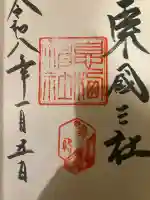 東國三社
息栖神社
令和八年一月五日